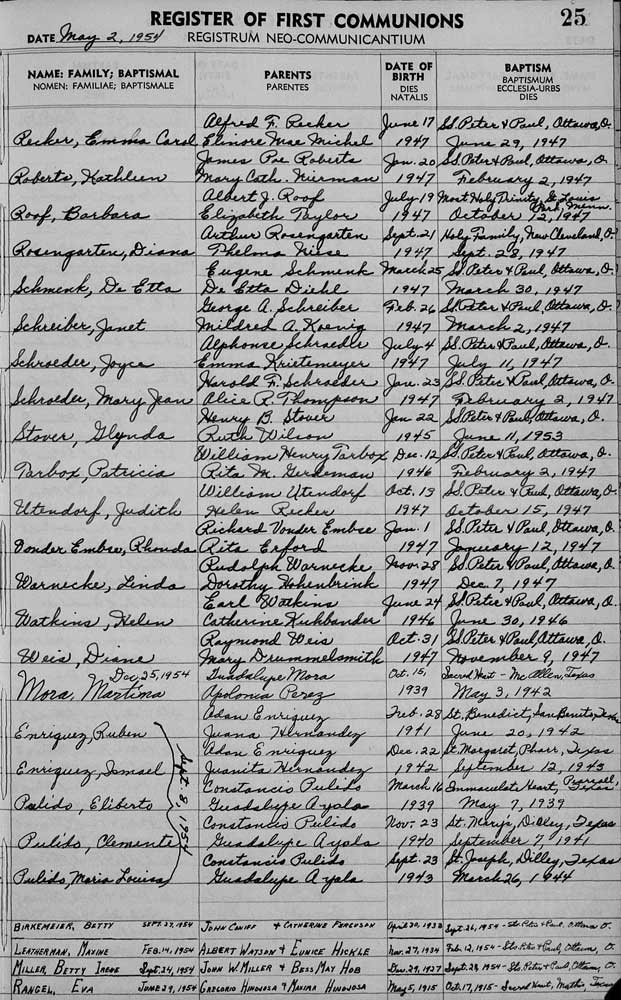 REGISTER OF FIRST COMMUNIONS 25
DATE May 2, 1954 REGISTRUM NEO-COMMUNICANTIUM
NAME: FAMILY; BAPTISMAL PARENTS DATE OF BIRTH BAPTISM
NOMEN: FAMILIAE; BAPTISMALE PARENTES DIES NATALIS BAPTISMUM ECCLESIA-URBS DIES
Alfred F. Recker June 17 SS. Peter & Paul, Ottawa, O.
Recker, Emma Carol Elinore Mae Michel 1947 June 29, 1947
James Poe Roberts Jan. 20 SS. Peter & Paul, Ottawa, O.
Roberts, Kathleen Mary Cath. Nierman 1947 February 2, 1947
Albert J. Roof July 19 Most Holy Trinity, St. Louis Park, Minn.
Roof, Barbara Elizabeth Taylor 1947 October 12, 1947
Arthur Rosengarten Sept. 21 Holy Family, New Cleveland, O.
Rosengarten, Diana Thelma Niese 1947 Sept. 28, 1947
Eugene Schmenk March 25 SS. Peter & Paul, Ottawa, O.
Schmenk, De Etta De Etta Diehl 1947 March 30, 1947
George A. Schreiber Feb. 26 SS. Peter & Paul, Ottawa, O.
Schreiber, Janet Mildred A. Koenig 1947 March 2, 1947
Alphonse Schroeder July 4 SS. Peter & Paul, Ottawa, O.
Schroeder, Joyce Emma Krietemeyer 1947 July 11, 1947
Harold F. Schroeder Jan. 23 SS. Peter & Paul, Ottawa, O.
Schroeder, Mary Jean Alice R. Thompson 1947 February 2, 1947
Henry B. Stover Jan 22 SS. Peter & Paul, Ottawa, O.
Stover, Glynda Ruth Wilson 1945 June 11, 1953
William Henry Tarbox Dec. 12 SS. Peter & Paul, Ottawa, O.
Tarbox, Patricia Rita M. Gerdeman 1946 February 2, 1947
William Utendorf Oct. 13 SS. Peter & Paul, Ottawa, O.
Utendorf, Judith Helen Recker 1947 October 15, 1947
Richard Vonder Embse Jan. 1 SS. Peter & Paul, Ottawa, O.
Vonder Embse, Rhonda Rita Erford 1947 January 12, 1947
Rudolph Warnecke Nov. 28 SS. Peter & Paul, Ottawa, O.
Warnecke, Linda Dorothy Hohenbrink 1947 Dec. 7, 1947
Earl Watkins June 24 SS. Peter & Paul, Ottawa, O.
Watkins, Helen Catherine Kuhbander 1946 June 30, 1946
Raymond Weis Oct. 31 SS. Peter & Paul, Ottawa, O.
Weis, Diane Mary Drummelsmith 1947 November 9, 1947
Dec, 25, 1954 Guadalupe Mora Oct. 15, Sacred Heart - McAllen, Texas
Mora, Martima Apolonia Perez 1939 May 3, 1942
Adan Enriquez Feb. 28 St. Benedict, San Benito, Texas
Enriquez, Ruben Juana Hernandez 1941 June 20, 1942
Adan Enriquez Dec. 22 St. Margaret, Pharr, Texas
Enriquez, Ismael Juanita Hernandez 1942 September 12, 1943
Sept. 8, 1954
Constancio Pulido March 16 Immaculate Heart, Texas
Pulido, Eliberto Guadalupe Ayala 1939 May 7, 1939
Constancio Pulido Nov. 23 St. Mary's, Dilley, Texas
Pulido, Clemente Guadalupe Ayala 1940 September 7, 1941
Constancio Pulido Sept. 23 St. Joseph, Dilley, Texas
Pulido, Maria Louisa Guadalupe Ayala 1943 March 26, 1944
BIRKEMEIER, BETTY SEPT. 27, 1954 JOHN CUNIFF & CATHERINE FERGUSON April 30, 1933 Sept. 26, 1954 - Sts. Peter & Paul, Ottawa O.
LEATHERMAN, MAXINE FEB. 14, 1954 ALBERT WATSON & EUNICE HICKLE Nov. 27, 1934 Feb. 12, 1954 - Sts. Peter & Paul, Ottawa, O.
MILLER, BETTY IRENE Sept. 24, 1954 JOHN W. MILLER & BESS MAY HOB Dec. 29, 1927 Sept. 23, 1954 - Sts. Peter & Paul, Ottawa, O.
RANGEL, EVA JUNE 29, 1954 GREGORIO HINOJOSA & MAXIMA HINOJOSA May 5, 1915 Oct. 17, 1915 - Sacred Heart, Mathis, Texas